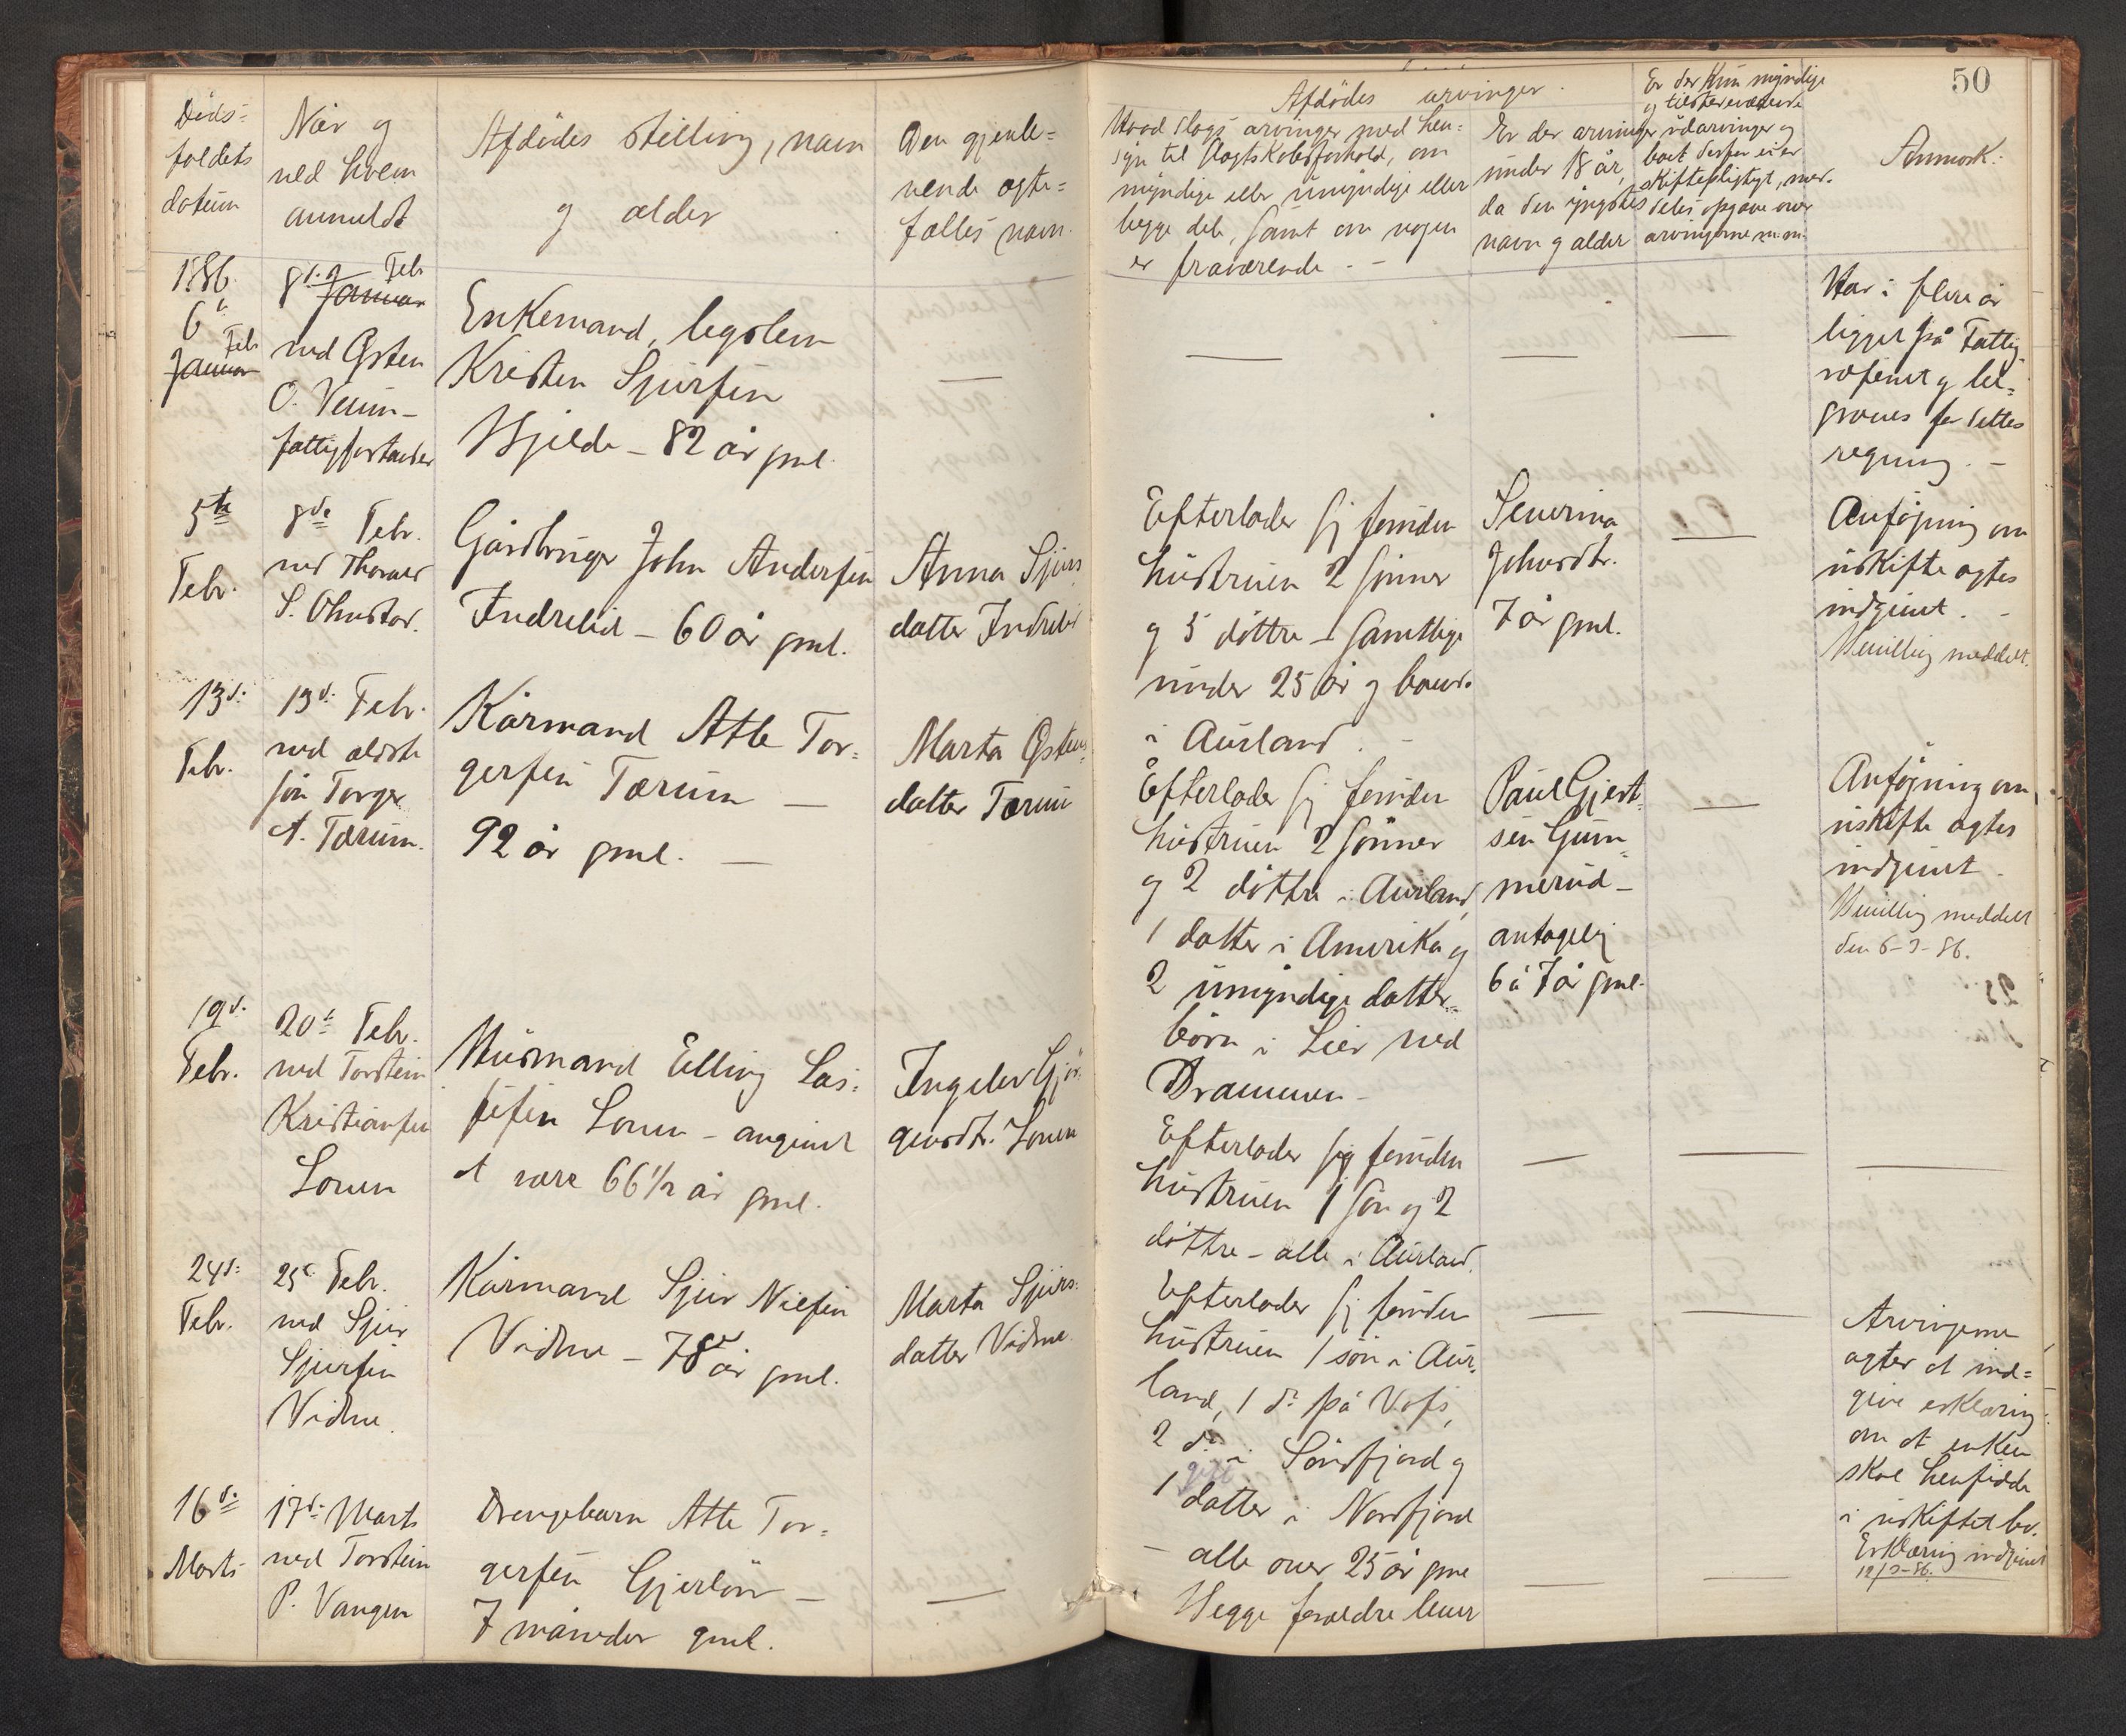 50
Døds=
faldets
datum
Når og
ved hvem
anmeldt
Afdødes stilling, navn
og alder
Den gjenle=
vende ægte=
fælles navn.
Afdødes arvinger.
Hvad slags arvinger med hen=
syn til slægtskabsforhold, om
myndige eller umyndige eller
begge dele, samt om nogen
er fraværende. –
Er der arvinger
under 18 år,
da den yngstes
navn og alder
Er der kun myndige
og tilstedeværende
udarvinger og
boet derfor ei er
skiftepligtigt, med=
deles opgave over
arvingerne m.m.
Anmerk:
1886
6te
Feb
Januar
8de Feb
Januar
ved Østen
O. Veum –
fattigforstander
Enkemand, lægdslem
Kristen Sjursen
Hjelde – 82 år gml.
—
—
—
—
Har i flere år
ligget på Fattig
væsenet og be=
graves for dettes
regning. –
5te
Febr.
8de Febr.
ved Thorvald
S. Ohnstad.
Gårdbruger John Andersen
Indrelid – 60 år gml.
Anna Sjurs
datter Indrelid
Efterlader sig foruden
hustruen 2 sønner
og 5 døttre – samtlige
under 25 år og boende
i Aurland. –
Severina
Johnsdtr.
7 år gml.
—
Ansøgning om
uskifte agtes
indgivet. –
Bevilling meddelt.
13de
Febr.
13de Febr.
ved ældste
søn Torger
A. Tærum.
Kårmand Atle Tor=
gersen Tærum —
92 år gml. —
Marta Østens
datter Tærum
Efterlader sig foruden
hustruen 2 sønner
og 2 døttre i Aurland,
1 datter i Amerika og
2 umyndige datter=
børn i Lier ved
Drammen –
Paul Gjert
sen Gum=
merud –
antagelig
6 à 7 år gml.
—
Ansøgning om
uskifte agtes
indgivet –
Bevilling meddelt
den 6-3-86.
19de
Febr.
20de Febr.
ved Torstein
Kristiansen
Loven
Husmand Elling Las=
sesen Loven – angivet
at være 66 1/2 år gml.
Ingelev Gjør=
gensdtr. Loven
Efterlader sig foruden
hustruen 1 søn og 2
døttre – alle i Aurland.
—
—
—
24de
Febr.
25de Febr.
ved Sjur
Sjursen
Vidme.
Kårmand Sjur Nilsen
Vidme – 78 år gml.
Marta Sjurs=
datter Vidme.
Efterlader sig foruden
hustruen 1 søn i Aur=
land, 1 do på Voss,
2 do i Søndfjord og
gift
1 datter i Nordfjord
– alle over 25 år gml
—
—
Arvingerne
agter at ind=
give erklæring
om at enken
skal hensidde
i uskiftet bo.
Erklæring indgivet
12/3-86.
16de
Marts
17de Marts
ved Torstein
P. Vangen
Drengebarn Atle Tor=
gersen Gjerløw —
7 måneder gml.
—
Begge forældre lever
—
—